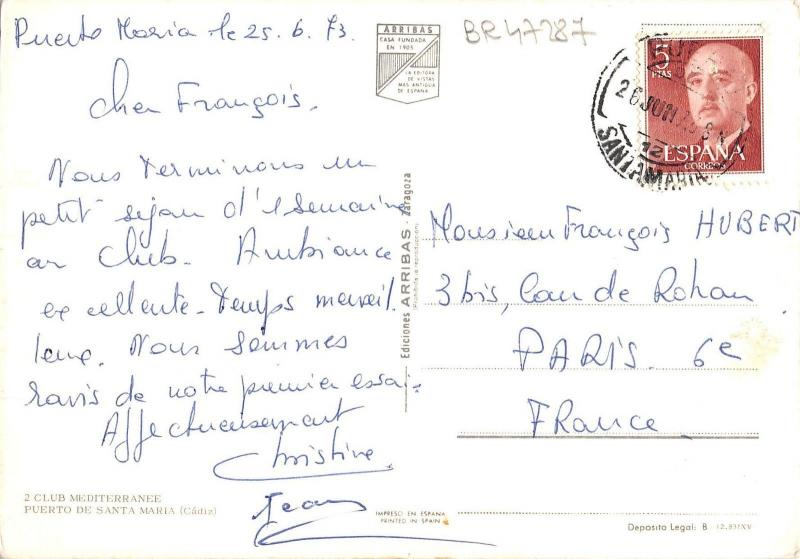 Puerto Maria le 25. 6. 73.
Cher François.
Nous terminons un
petit séjour d'1 semaine
au Club. Ambiance
excellente. Temps merveil.
leux. Nous sommes
ravis de notre premier essai.
Affectueusement
Christine
Jean
2 CLUB MEDITERRANEE
PUERTO DE SANTA MARIA (Cádiz)
ARRIBAS
CASA FUNDADA
EN 1905
LA EDITORA
DE VISTAS
MAS ANTIGUA
DE ESPAÑA
Ediciones ARRIBAS - Zaragoza
Prohibida la reproducción
IMPRESO EN ESPAÑA
PRINTED IN SPAIN
BR47287
5
PTAS
ESPAÑA
CORREOS
26 JUN
12
SANTAMARIA
Monsieur François HUBERT
3 bis, Cour de Rohan
PARIS. 6e
FRANCE
Deposito Legal: B 12.831XV